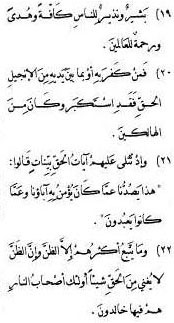 (١٩) بَشِيرٌ ونَذيرٌ لِلنّاسِ كَافَّةً وَهُدىً
وَرَحْمةً لِلعَالَمِينَ.
(٢٠) فَمَنْ كَفَرَ بِهِ أوْ بِمَا بَيْنَ يَدَيْهِ مِنَ الإنْجِيلِ
الحَقِّ فَقَدِ اسْتَكْبَرَ وَكَانَ مِنَ
الهَالِكِينَ.
(٢١) وَإذْ تُتْلَى عَلَيهِمْ آيَاتُ الحَقِّ بَيِّنَاتٍ قَالُوا:
"هذا يَصُدُّنَا عَمَّا كَانَ يُؤْمِنُ بِهِ آبَاؤُنَا وَعَمَّا
كَانُوا يَعْبُدُونَ".
(٢٢) وَمَا يَتَّبِعُ أكْثَرُهُمْ إلاَّ الظَّنَّ وَإنَّ الظَّنَّ
لا يُغْنِي مِنَ الحَقِّ شَيئاً أولئِكَ أصْحَابُ النَّارِ
هُمْ فِيهَا خَالِدُونَ.